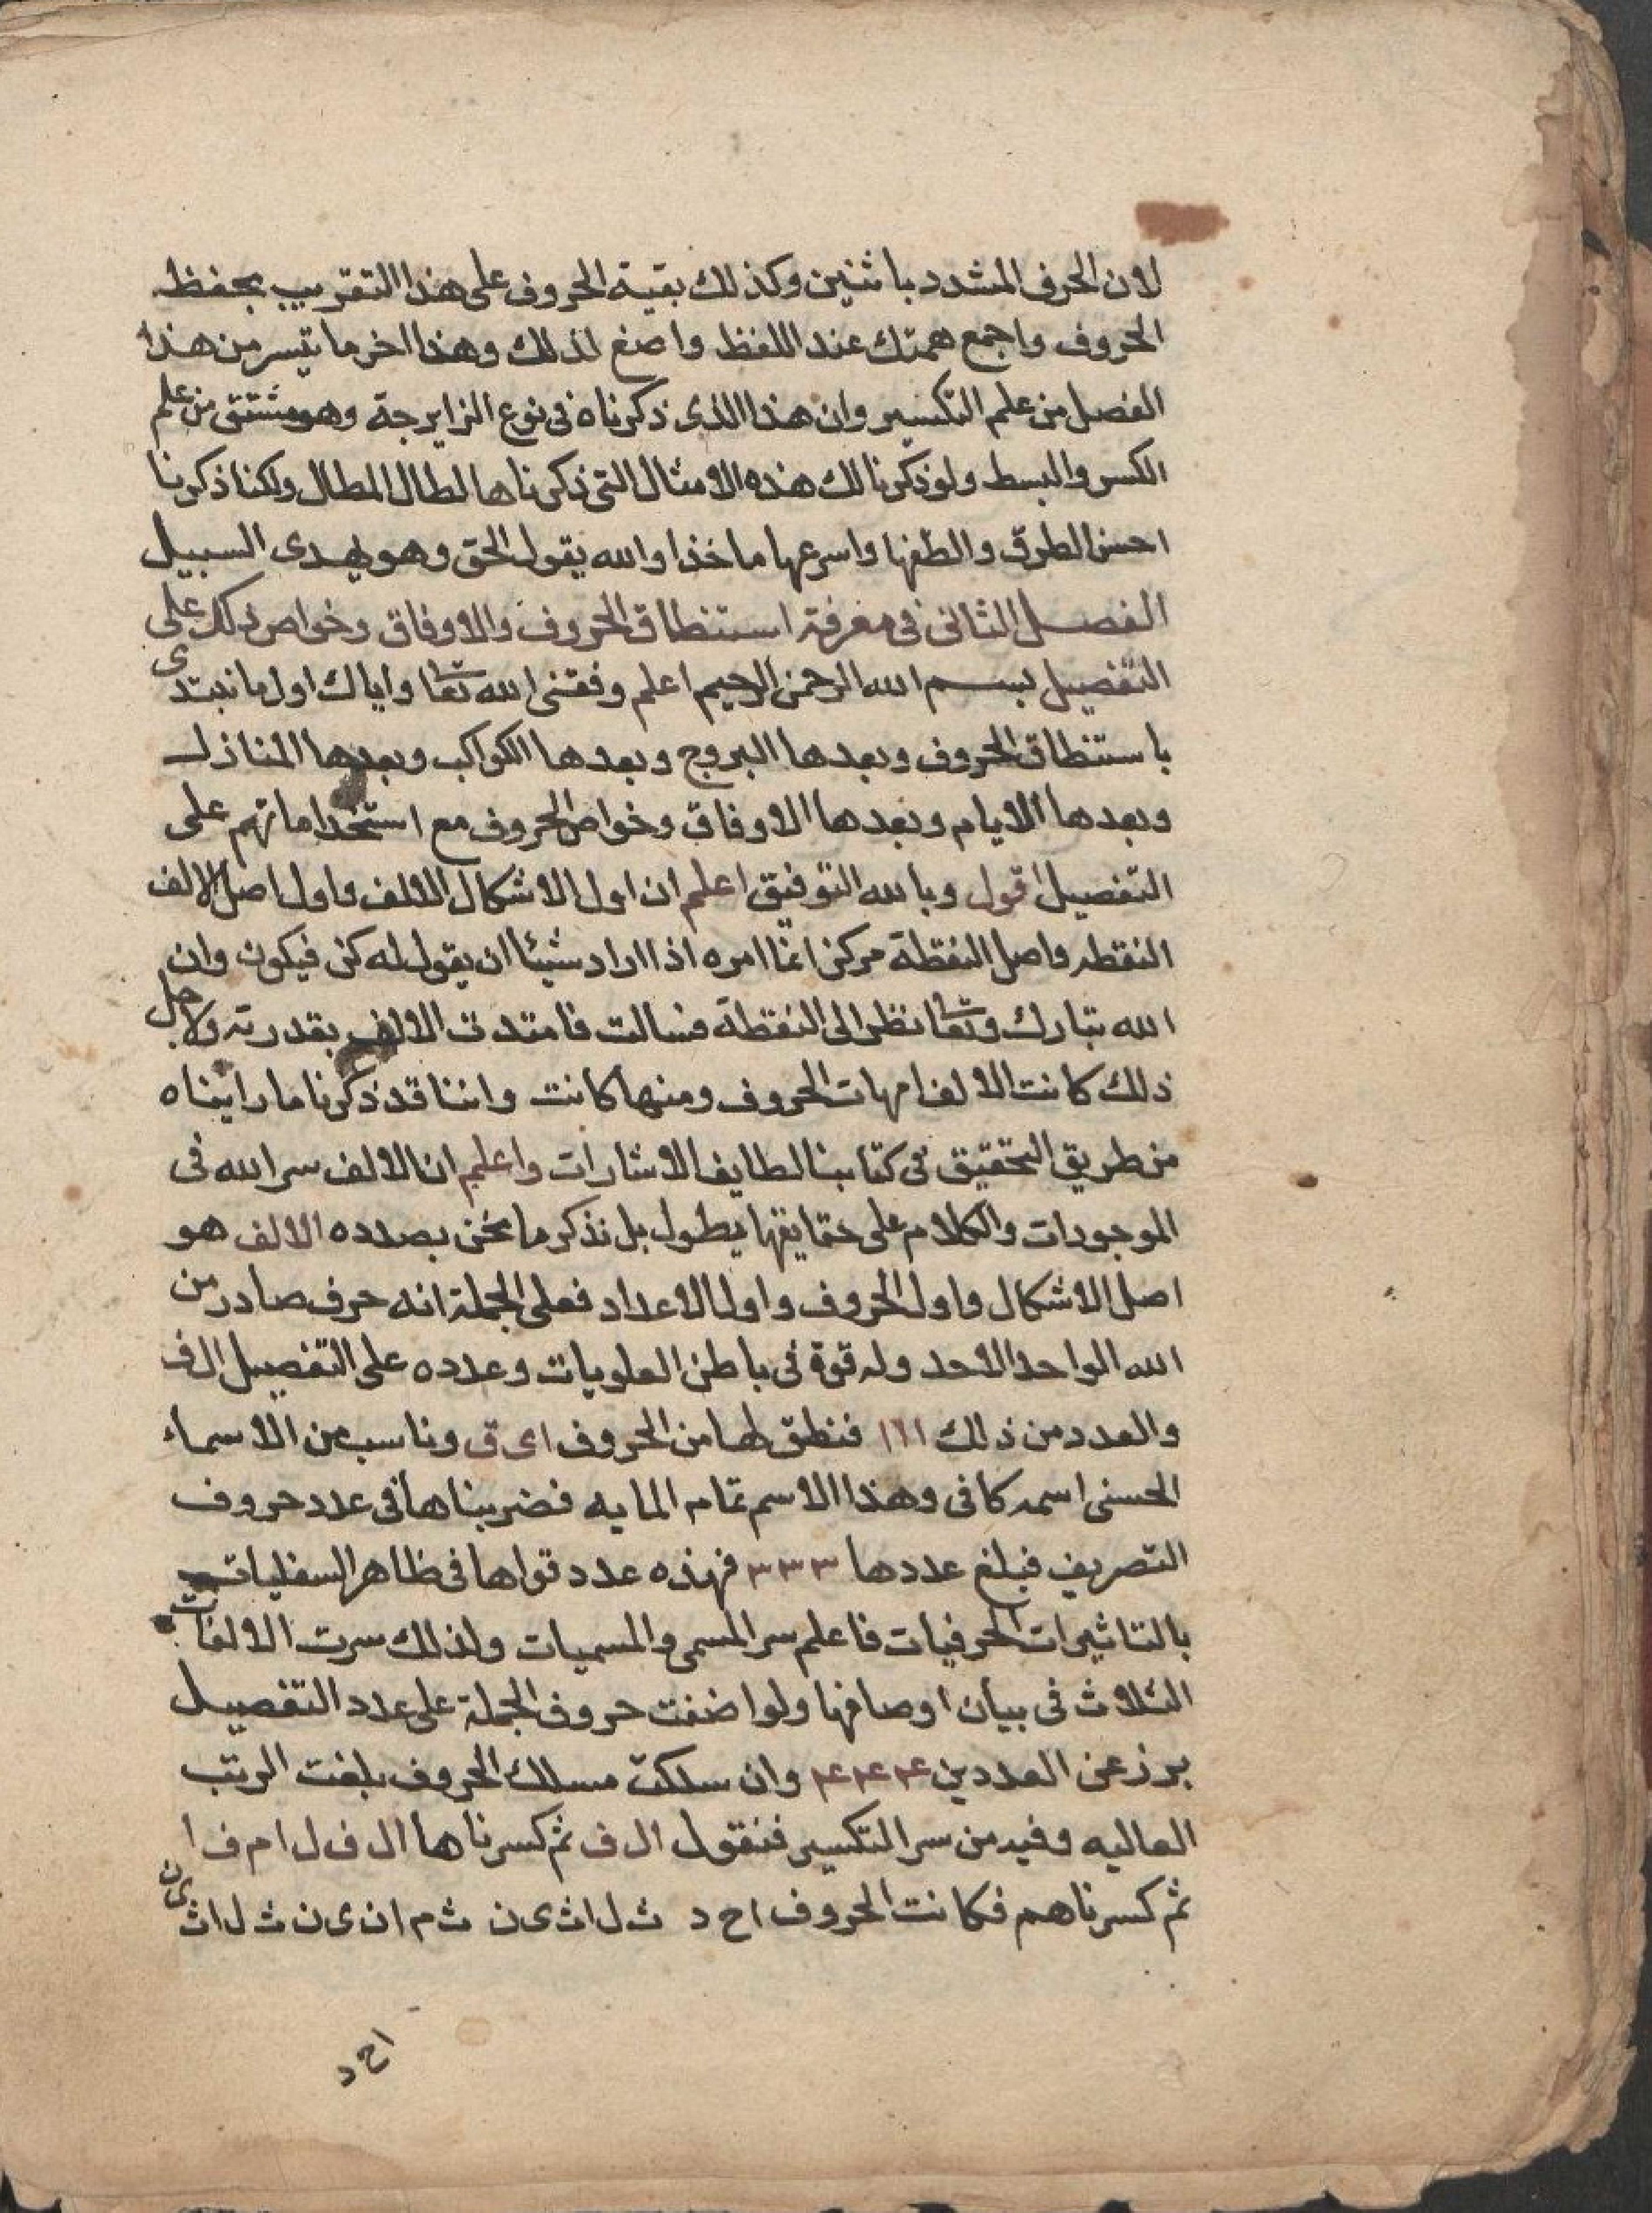 لان الحرف المشدد باثنين وكذلك بقية الحروف على هذا التقريب بحفظ
الحروف واجمع همتك عند اللفظ واصغ لذلك وهذا اخر ما تيسر من هذا
الفصل من علم التكسير وان هذا الذى ذكرناه فى نوع الزايرجة وهو مشتق من علم
الكسر والبسط ولو ذكرنا لك هذه الامثال التى ذكرناها لطال المطال ولكنا ذكرنا
احسن الطرق والطفها واسرعها ماخذا والله يقول الحق وهو يهدى السبيل
الفصل الثانى فى معرفة استنطاق الحروف والاوفاق وخواص ذلك على
التفصيل بسم الله الرحمن الرحيم اعلم وفقنى الله تعا واياك اول ما نبتدى
باستنطاق الحروف وبعدها البروج وبعدها الكواكب وبعدها المنازل
وبعدها الايام وبعدها الاوفاق وخواص الحروف مع استخداماتهم على
التفصيل اقول وبالله التوفيق اعلم ان اول الاشكال الالف واول اصل الالف
النقطه واصل النقطة مركز انما امره اذا اراد شيئا ان يقول له كن فيكون وان
الله تبارك وتعا نظر الى النقطة فسالت فامتدت الالف بقدرته ولاجل
ذلك كانت الالف امهات الحروف ومنها كانت واننا قد ذكرنا ما رايناه
من طريق التحقيق فى كتابنا لطايف الاشارات واعلم ان الالف سر الله فى
الموجودات والكلام على حقايقها يطول بل نذكر ما نحن بصدده الالف هو
اصل الاشكال واول الحروف واول الاعداد فعلى الجملة انه حرف صادر من
الله الواحد الاحد وله قوة فى باطن العلويات وعدده على التفصيل ال ف
والعدد من ذلك ١١١ فنطق لها من الحروف ا ى ق وناسب من الاسماء
الحسنى اسمه كافى وهذا الاسم تمام المايه فضربناها فى عدد حروف
التصريف فبلغ عددها ٣٣٣ فهذه عدد قواها فى ظاهر السفليات
بالتاثيرات الحرفيات فاعلم سر المسمى والمسميات ولذلك سرت الالفات
الثلاث فى بيان اوصافها ولو اضفت حروف الجملة على عدد التفصيل
برز عن العددين ۴۴۴ وان سلكت مسلك الحروف بلغت الرتب
العاليه وفيه من سر التكسير فنقول ال ف ثم كسرناها ال ف ل ا م ف ا
ثم كسرناهم فكانت الحروف ا ح د ث ل ا ث ى ن ث م ا ن ى ن ث ل ا ث ى ن
ا ح د